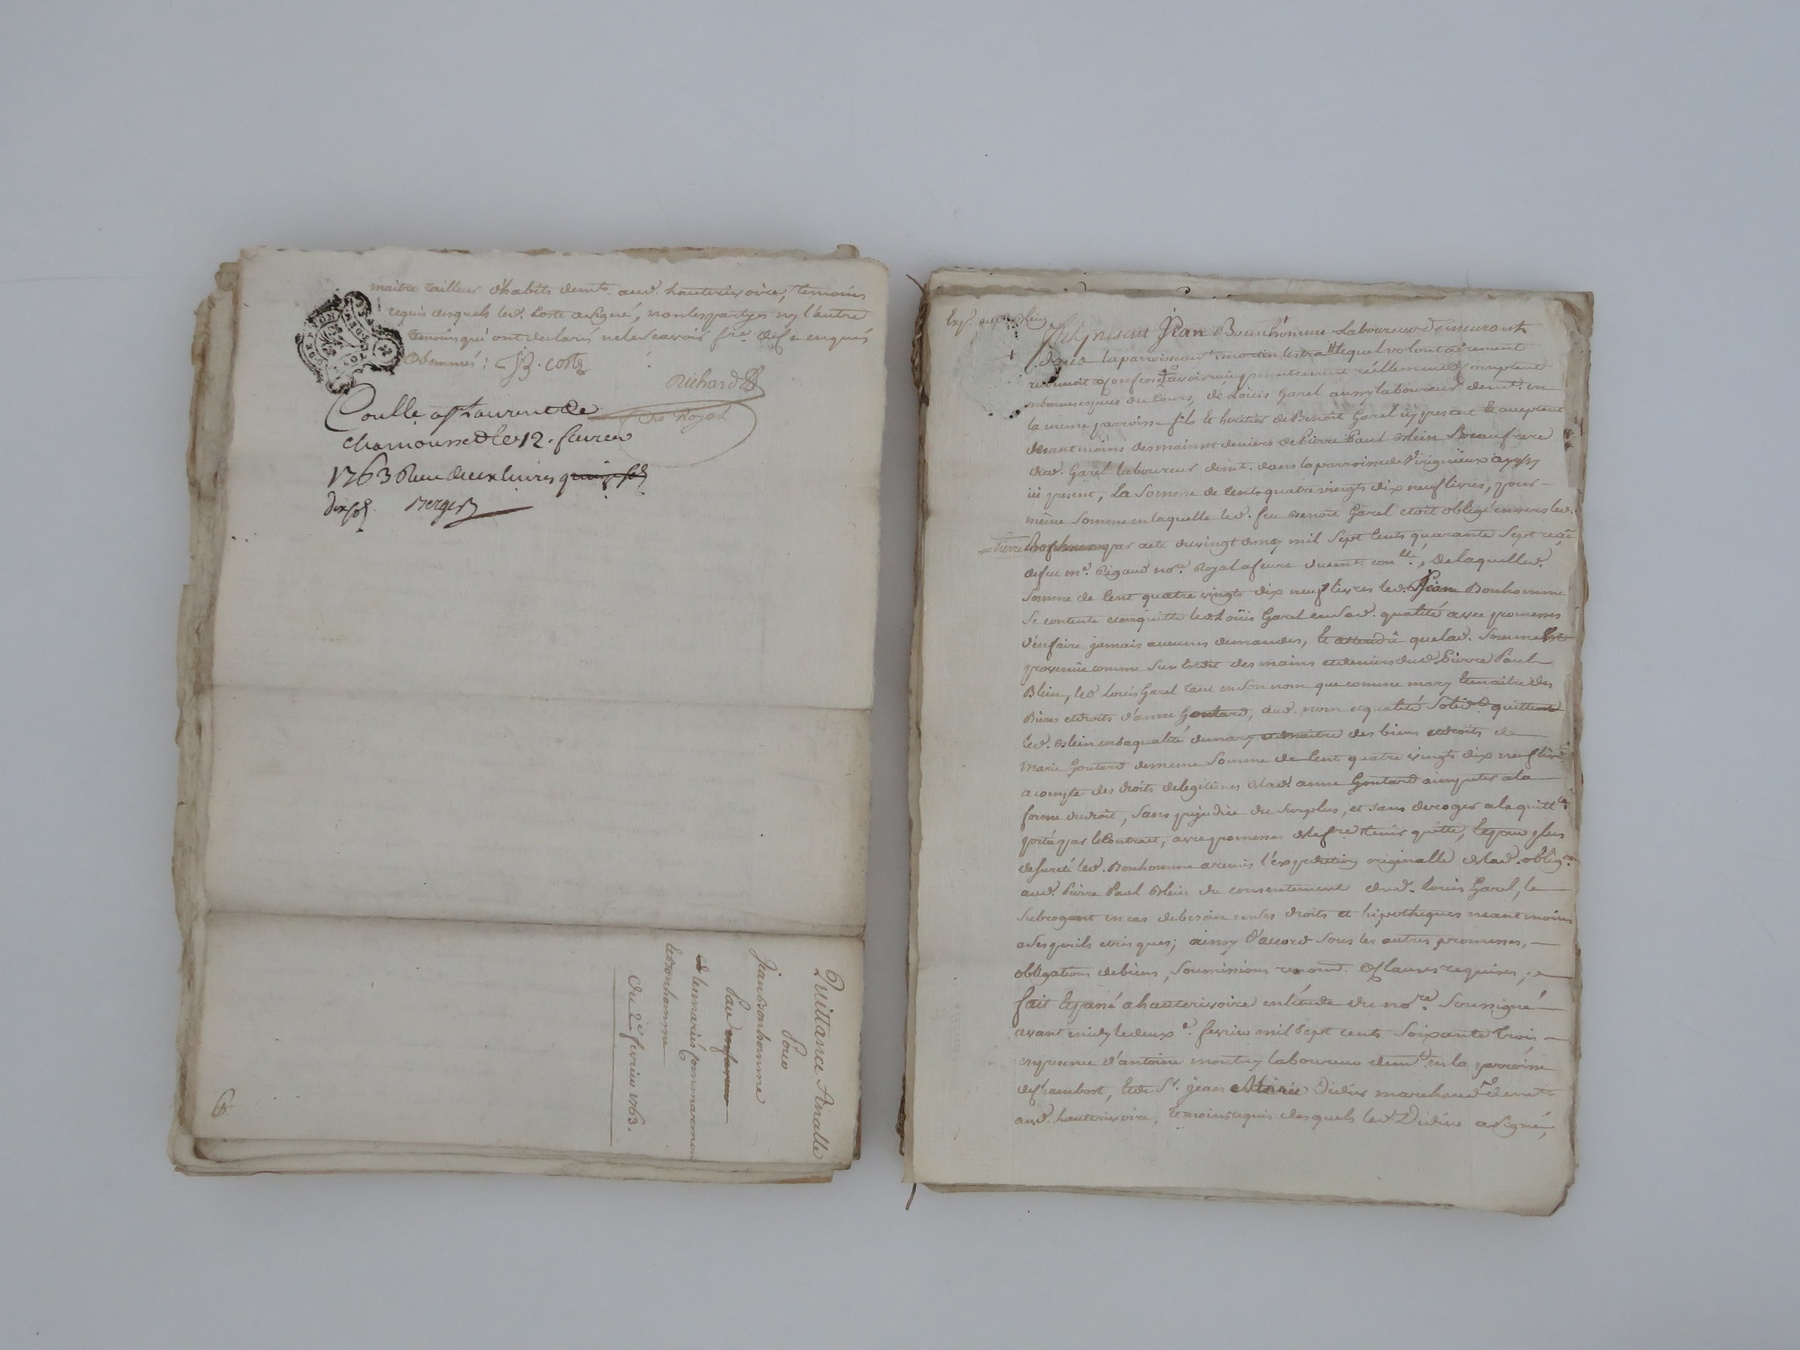 maitre tailleur d'habits demt. aud. hauterivoire, temoins
requis desquels led. Coste a signé, non les partyes ny l'autre
temoin qui ont declarés ne le scavoir fre. de ce enquis
& sommés : JB. coste
Richard
No Royal
Conllé a St laurent de
chamousset le 12. fevrier
1763 Reçu deux livres
dix sols Berger
Quittance Analle
Pour
Jean Bonhomme
Le 2e fevrier 1763.
6
Fut présent Jean Bonnhomme Laboureur demeurant
la parroisse St martin lestra lequel volontairement
reconnoit & confesse avoir reçu presentement reellement & comptant
en bonnes especes du cours, de Louis Garel aussy laboureur demt. en
la meme parroisse fils & heritier de Benoit Garel icy present & acceptant
neantmoins des mains & deniers de Pierre Paul Blein Beaufrere
dud. Garel laboureur demt. dans la parroisse de Virigneux aussy
ici present, La Somme de Cent quatre vingts dix neuf livres, pour
même Somme en laquelle led. feu Benoit Garel etoit obligé envers led.
Pierre Bonhomme par acte du vingt mil Sept Cents quarante Sept reçu
de feu me. Rigaud nore. Royal a feurs duemt con.lé, de laquelled.
Somme de Cent quatre vingts dix neuf livres led. Jean Bonhomme
Se contente & en quitte led. Loüis Garel en sad. qualité avec promesses
d'en faire jamais aucunes demandes, & attendû que lad. Somme est
provenüe comme Sus est dit des mains & deniers dud. Pierre Paul
Blein, led. Louis Garel tant en Son nom que comme mary & maitre des
Biens & droits d'anne Goutard, aud. nom & qualité Solid.t quittent
led. Blein en sa qualité de mary & maitre des biens & droits de
Marie Goutard de meme Somme de Cent quatre vingts dix neuf livres
a compte des droits de legitimes de lad. anne Goutard a imputer a la
forme du droit, Sans prejudice du Surplus, et sans deroger a la quitt.ce
porté par le Contract, avec promesses de le fre. tenir quitte, & pour plus
de sureté led. Bonhomme a remis l'expedition originalle de lad. oblig.on
aud. Pierre Paul Blein du consentement dud. Louis Garel, le
Subrogeant en cas de besoin en ses droits et hipotheques neantmoins
a ses perils & risques; ainsy d'accord Sous les autres promesses,
obligations de biens, Soumissions renont. & Clauses requises,
fait & passé a hauterivoire en l'etude du nore. Soussigné
avant midy le deuxe. fevrier mil Sept cents Soixante trois
en presence d'antoine laboureur demt. en la parroisse
de Chambost, & de Sr. jean Marie Didier marchand demt.
aud. hauterivoire, temoins requis desquels led. Didier a Signé,